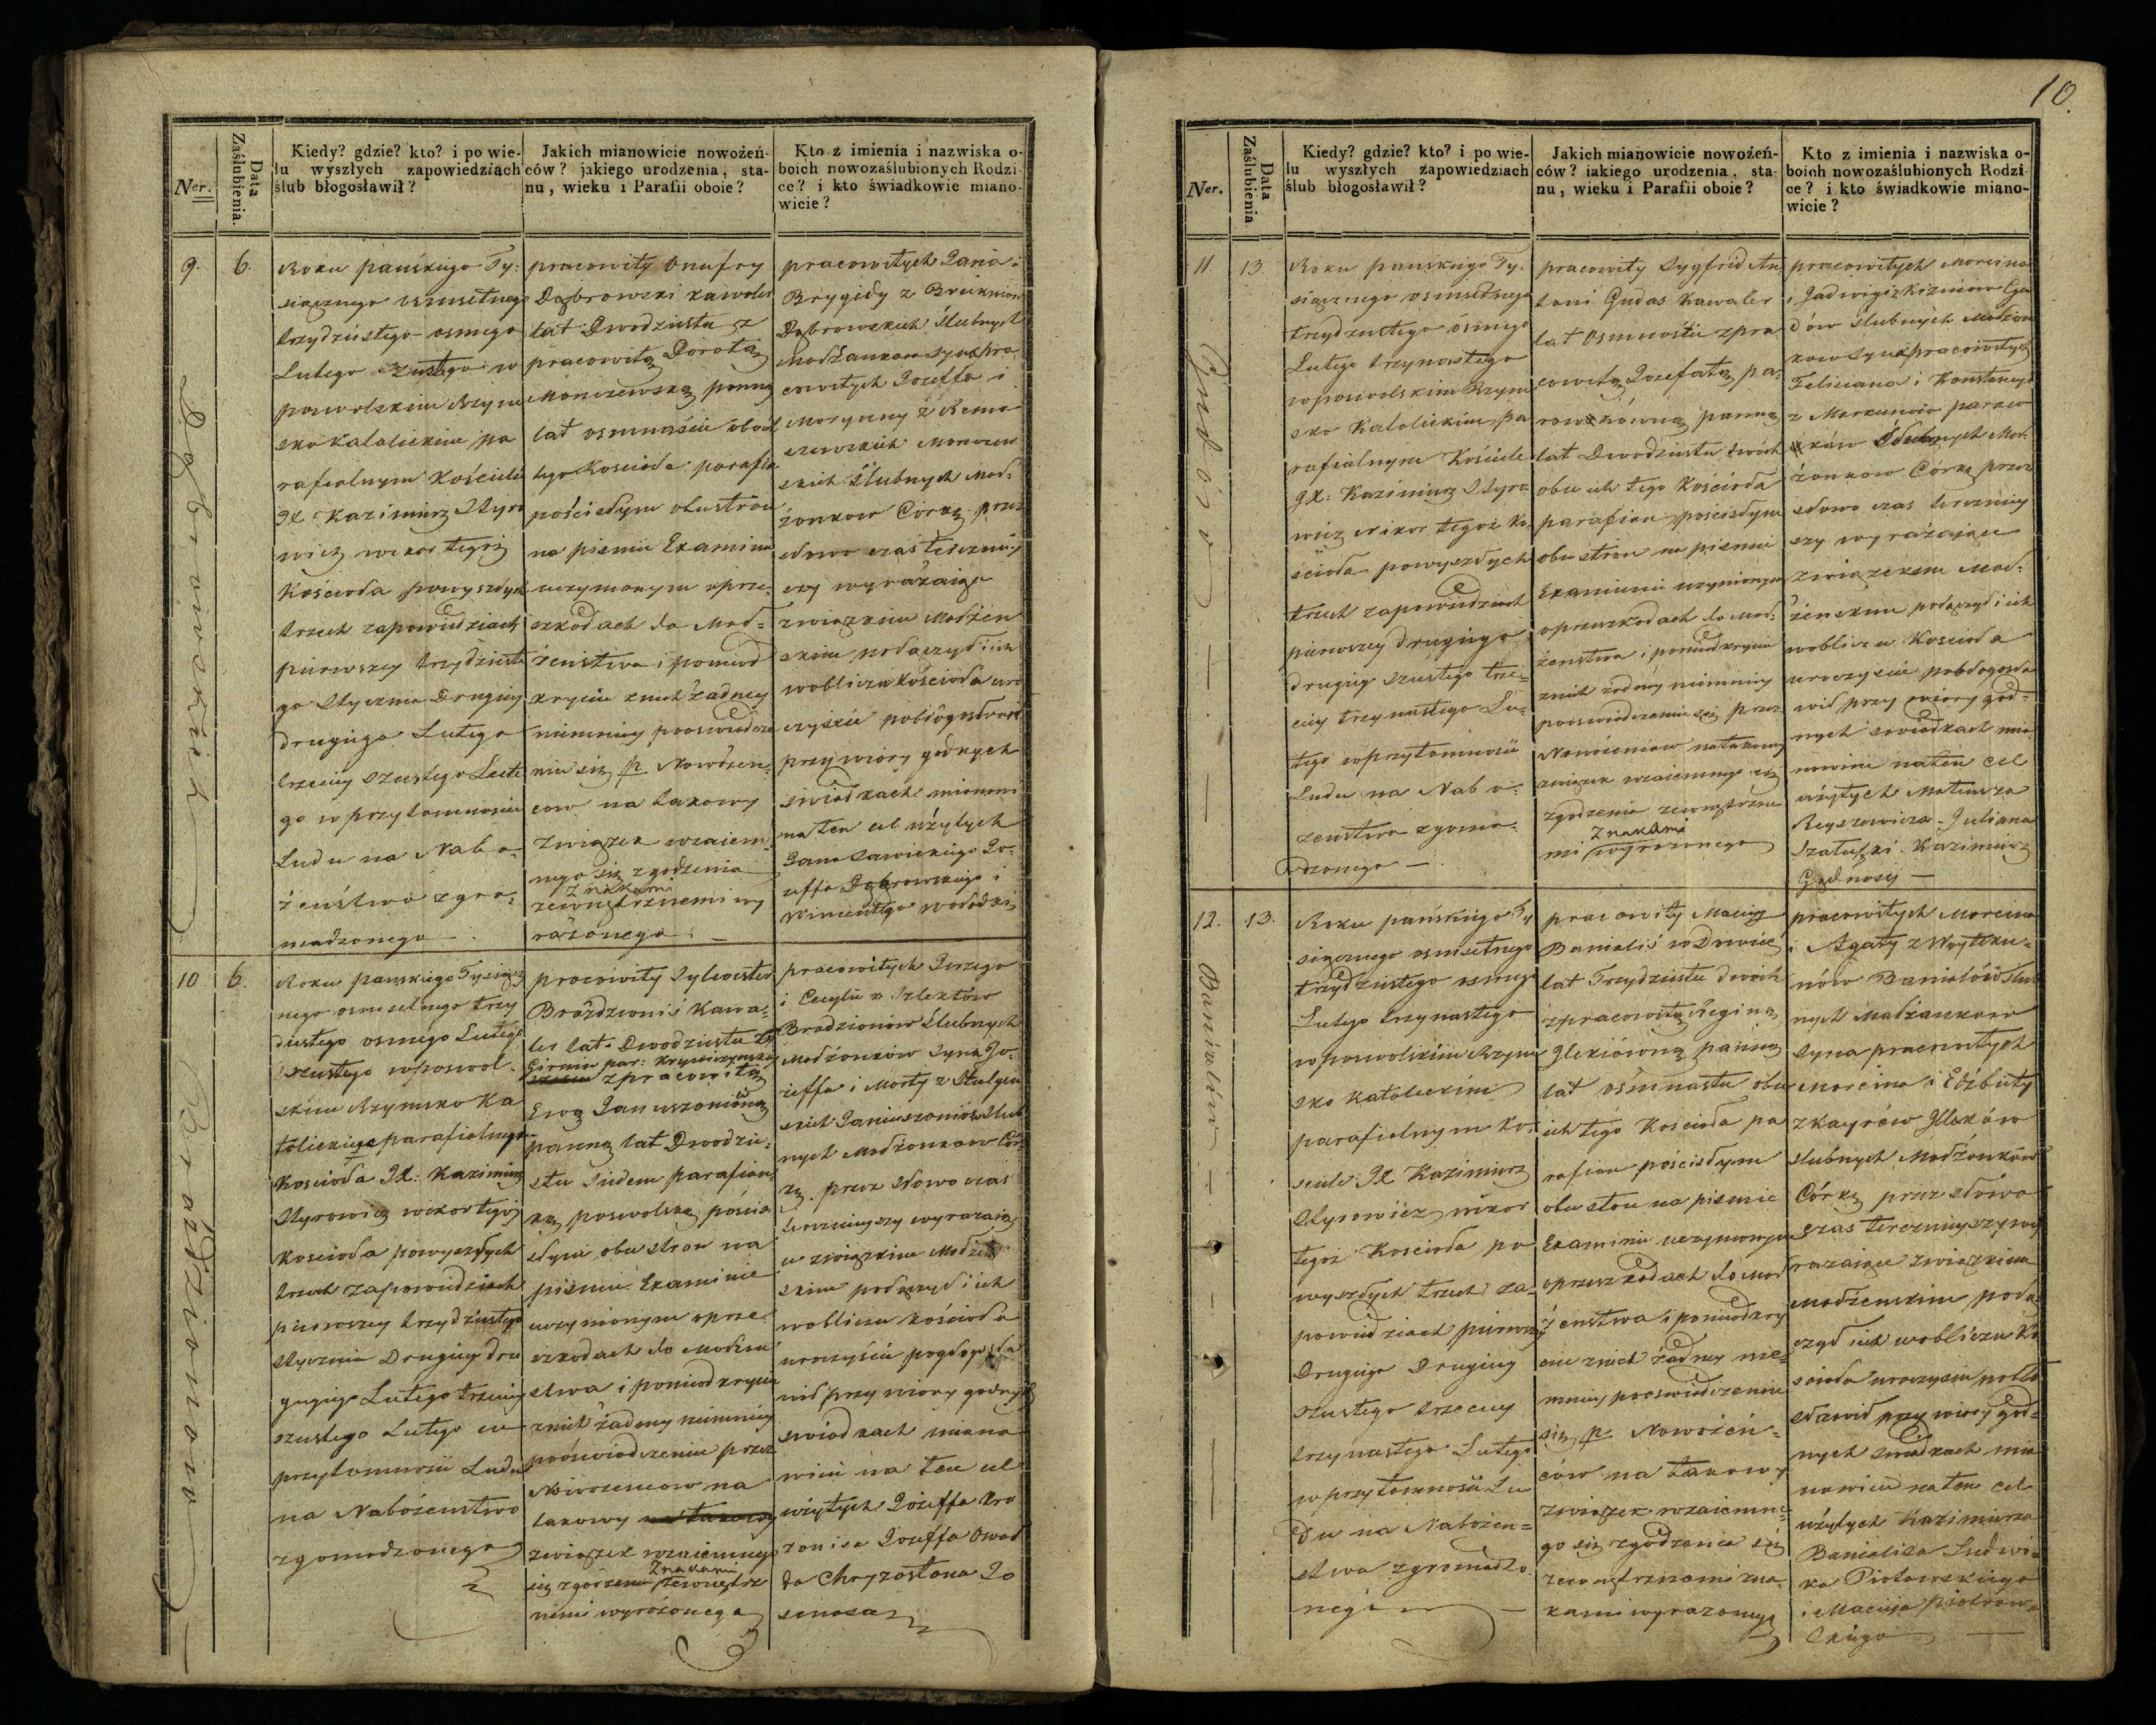 10.
Ner.
Data Zaślubienia.
Kiedy? gdzie? kto? i po wie-
lu wyszłych zapowiedziach
ślub błogosławił?
Jakich mianowicie nowożeń-
ców? jakiego urodzenia, sta-
nu, wieku i Parafii oboie?
Kto z imienia i nazwiska o-
boich nowozaślubionych Rodzi-
ce? i kto świadkowie miano-
wicie?
9.
6.
Dąbrowskich
Roku pańskiego Ty:
siącznego osmsetnego
trzydziestego osmego
Lutego Szustego w
poswolskim Rzym
sko katolickim pa
rafialnym Kościele
JX Kazimierz Styro
wicz wikar tegoż
Kościoła powyszłych
trzech zapowiedziach
pierwszey trzydzieste
go Stycznia Drugiey
drugiego Lutego
trzeciey szustego Lute
go w przytomnosciu
Ludu na Nabo-
żeństwo zgro-
madzonego
pracowity Onufry
Dąbrowski kawaler
lat Dwodziestu z
pracowitą Dorotą
Monczewską panną
lat osmnaście oboch
tego Kościoła parafia
pościsłym obustron
na pismie Examinie
uczynionym oprze-
szkodach do Mał-
żenstwa i poniod
kryciu znich żadney
niemniey pooswiadcze
niu się p. Nowożen-
cow na takowy
związek wzaiem-
nego się zgodzenia
znakami
zewnętrznemi wy
rażonego
pracowitych Jana i
Brygidy z
Dąbrowskich Ślubnych
Małżonkow Syna z pra
cowitych Jozeffa i
Maryanny z Rema
szewskich Monczew
skich Ślubnych Mał-
żonkow Córką przez
słowo czas terazniey
szy wyrażaiące
związkiem Małżen
skim połączył i ich
wobliczu Kościoła uro
czyście pobłogosławił
przy wiary godnych
świadkach mianowi
na ten cel użytych
Jana Sawickiego Jo-
zeffa Dąbrowskiego i
Wincentego
10
6.
Brazdzioniow
Roku pańskiego Tysiącz
nego osmsetnego trzy
diestego osmego Lutego
szustego wposwol-
skim Rzymsko Ka
tolickiego parafialnym
Kościoła JX: Kazimierz
Styrowicz wikar tegoż
Kościoła powyszłych
trzech zapowiedziach
pierwszey trzydziestego
Stycznia Drugiey dru
giego Lutego trzeciey
szustego Lutego w
przytomnosci Ludu
na Nabożenstwo
zgomadzonego
pracowity Sylwester
Brażdzionis Kawa-
ler lat Dwodziestu
par:
zpracowitą
Ewą Januszoniówną
panną lat Dwodzie-
stu siedem parafian-
ką poswolską pościs
słym obustron na
pismie Examinie
uczynionym oprze-
szkodach do Małżen
stwa i poniodkryciu
znich żadney niemniey
pooswiadczeniu przez
Nowozencow na
takowy na takowy
związek wzaiemnego
znakami
się zgodzenia zewnętrz
nemi wyrażonego
pracowitych Jerzego
i Cecylii z Szlektów
Bradzioniow Ślubnych
Małżonków Syna Jo-
zeffa i Marty z
skich Januszoniów Ślub
nych Małżonkow Cór
ką przez słowo czas
terazniejszy wyrazaią
ce związkiem Małżen
skim połączył i ich
wobliczu kościoła
uroczyście pogłogosła
wił przy wiary godnych
świadkach miano
wicie na ten cel
użytych Jozeffa Bro
zonisa Jozeffa Owad
da Chryzostoma Jo
senasa
Ner.
Data Zaślubienia
Kiedy? gdzie? kto? i po wie-
lu wyszłych zapowiedziach
ślub błogosławił?
Jakich mianowicie nowożeń-
ców? iakiego urodzenia, sta-
nu, wieku i Parafii oboie?
Kto z imienia i nazwiska o-
boich nowozaślubionych Rodzi-
ce? i kto świadkowie miano-
wicie?
11.
13
Gudosów
Roku pańskiego Ty-
siącznego osmsetnego
trzydziestego ósmego
Lutego trzynastego
wposwolskim Rzym
sko Katolickim pa
rafialnym Kościele
JX: Kazimierz Styro-
wicz wikar tegoż Ko
ścioła powyszłych
trzech zapowiedziach
pierwszey drugiego
drugiey Szustego trze-
ciey trzynastego Lu-
tego wprzytomnosci
Ludu na Nabo-
zenstwo zgoma-
dzonego
pracowity Zygfrid An
toni Gudas Kawaler
lat Osmnoście zpra
cowitą Jozefatą pa-
rowkówną panną
lat Dwodziestu dwóch
obu ich tego Kościoła
parafian pościsłym
obustron na pismie
Examinie uczynionym
oprzeszkodach do Mał-
żenstwa i poniodkryciu
znich żadney niemniey
pooswiadczeniu się przez
Nowożencow na takowy
związek wzaiemnego się
zgodzenia zewnętrzne
znakami
mi wyrażonego
pracowitych Marcina
i Jadwigi z Gu
dów ślubnych Małżon
kow Syna z pracowitych
Feliciana i Konstancyi
z Markuniow parow
ków Ślubnych Mał-
żonkow Córką przez
słowo czas terazniey
szy wyrażaiące
związkiem Mał-
żenskim połączył i ich
wobliczu Kościoła
uroczyście pobłogosła
wił przy wiary god-
nych swiadkach mia
nowicie na ten cel
użytych Mateusza
Juliana
Kazimierz
12.
13.
Banialów
Roku pańskiego Ty
siącznego osmsetnego
trzydziestego osmego
Lutego trzynastego
wposwolskim Rzym
sko Katolickim
parafialnym Ko-
sciele JX Kazimierz
Styrowicz wikar
tegoż Kościoła po
wyszłych trzech za-
powiedziach pierwszey
Drugiego Drugiey
Szustego trzeciey
trzynastego Lutego
wprzytomnosci Lu
du na Nabożen-
stwo zgromadzo
nego
pracowity Maciey
Banialis wdowiec
lat Trzydziestu dwóch
zpracowitą Reginą
panną
lat ośmnastu obu
ich tego Kościoła pa
rafian pościsłym
obustron na pismie
Examinie uczynionym
oprzeszkodach do Mał
żenstwa i poniodkry
ciu znich żadney nie-
mniey pooswiadczeniu
się p. Nowożeń-
ców na takowy
związek wzaiemne-
go się zgodzenia się
zewnętrznemi zna-
kami wyrazonego
pracowitych Marcina
i Agaty z Woytku-
nów Banialów Ślub
nych Małżonkow
Syna pracowitych
Marcina i Elżbiety
slubnych Małżonków
Córką przez słowa
czas terazniejszy wy
razaiące związkiem
małżenskim połą
czył ich wobliczu Ko
scioła uroczyście pobło
sławił przy wiary god-
nych świadkach mia
nowicie na ten cel
użytych Kazimierza
Banialisa Ludwi-
ka Piotrowskiego
i Macieja Piotrow-
skiego